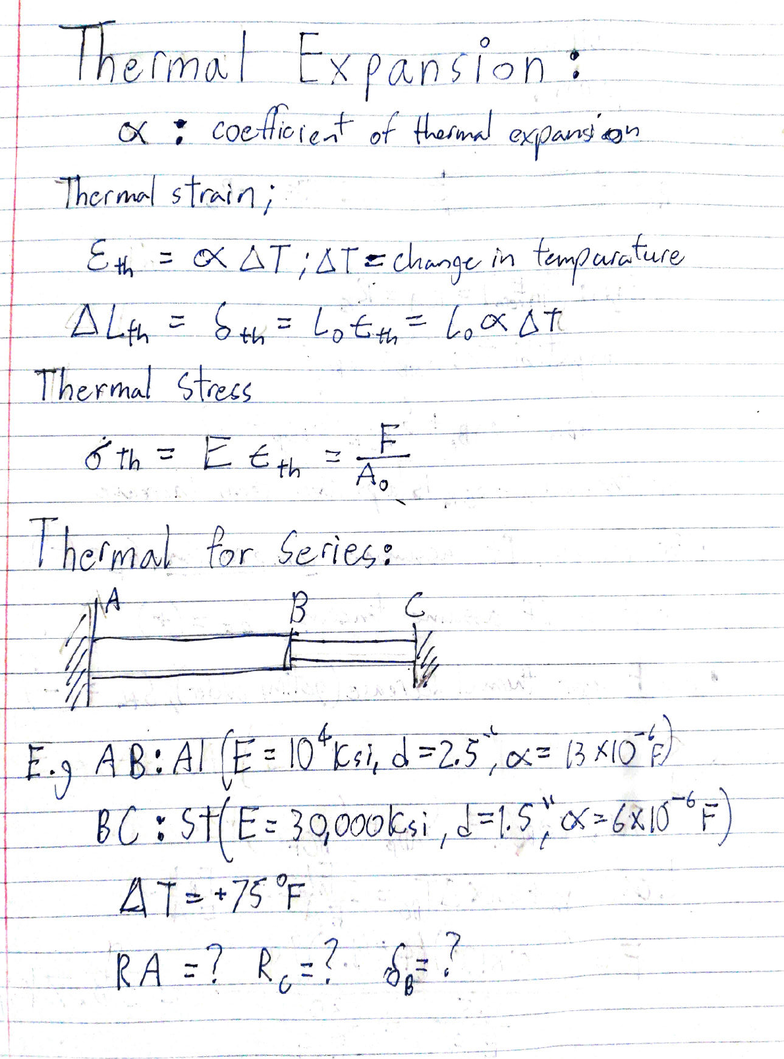 Thermal Expansion:
α : coefficient of thermal expansion
Thermal strain;
Ɛth = α ΔT ; ΔT = change in tempurature
ΔLth = δth = L₀ Ɛth = L₀ α ΔT
Thermal Stress
σth = E Ɛth = F/A₀
Thermal for Series:
A B C
E.g AB: Al (E = 10⁴ Ksi, d = 2.5", α = 13 x10⁻⁶ F)
BC : St (E = 30,000 ksi, d = 1.5", α = 6x10⁻⁶ F)
ΔT = +75 °F
RA = ? R꜀ = ? δB = ?